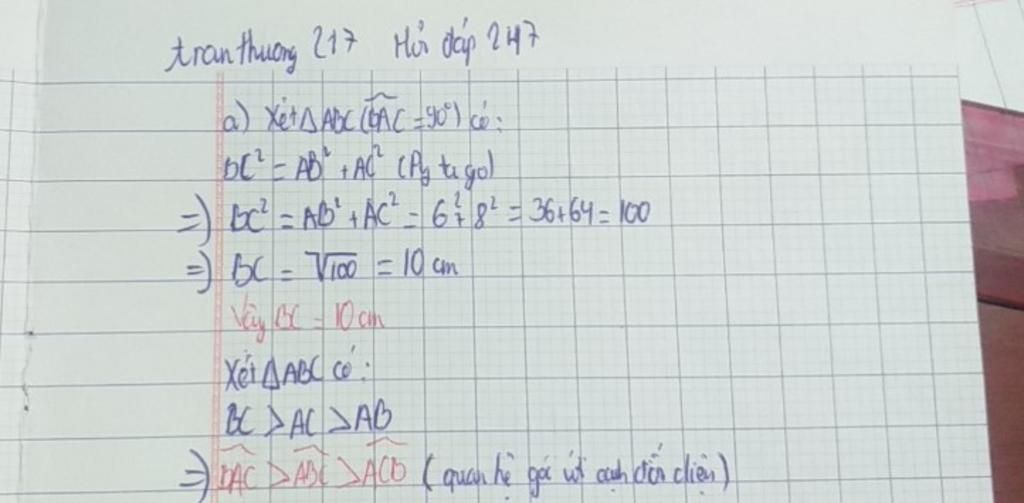 tranthuong 217 Hỏi đáp 247
a) Xét ΔABC (\widehat{BAC} = 90°) có:
BC² = AB² + AC² (Py ta go)
=) BC² = AB² + AC² = 6² + 8² = 36 + 64 = 100
=) BC = √100 = 10 cm
Vậy BC = 10 cm
Xét ΔABC có:
BC > AC > AB
=) \widehat{BAC} > \widehat{ABC} > \widehat{ACB} (quan hệ góc và cạnh đối diện)